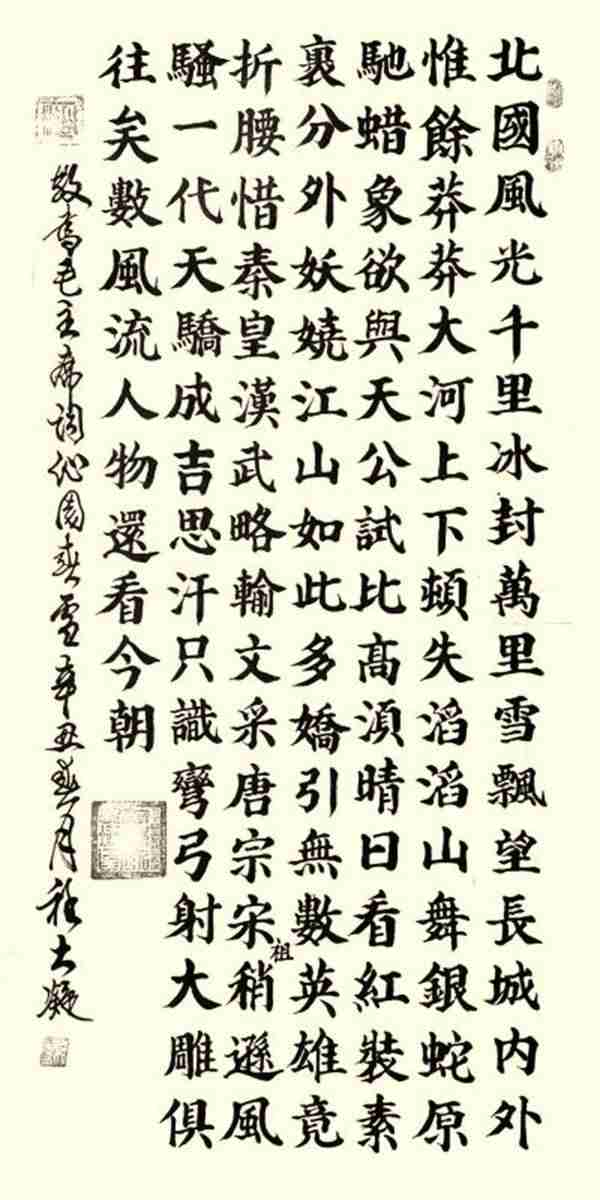 北國風光千里冰封萬里雪飄望長城内外
惟餘莽莽大河上下頓失滔滔山舞銀蛇原
馳蜡象欲與天公試比髙湏晴日看紅裝素
裹分外妖嬈江山如此多嬌引無數英雄竟
折腰惜秦皇漢武略輸文采唐宗宋祖稍遜風
騷一代天驕成吉思汗只識彎弓射大雕俱
往矣數風流人物還看今朝
敬書毛主席詞沁園春雪辛丑春月程